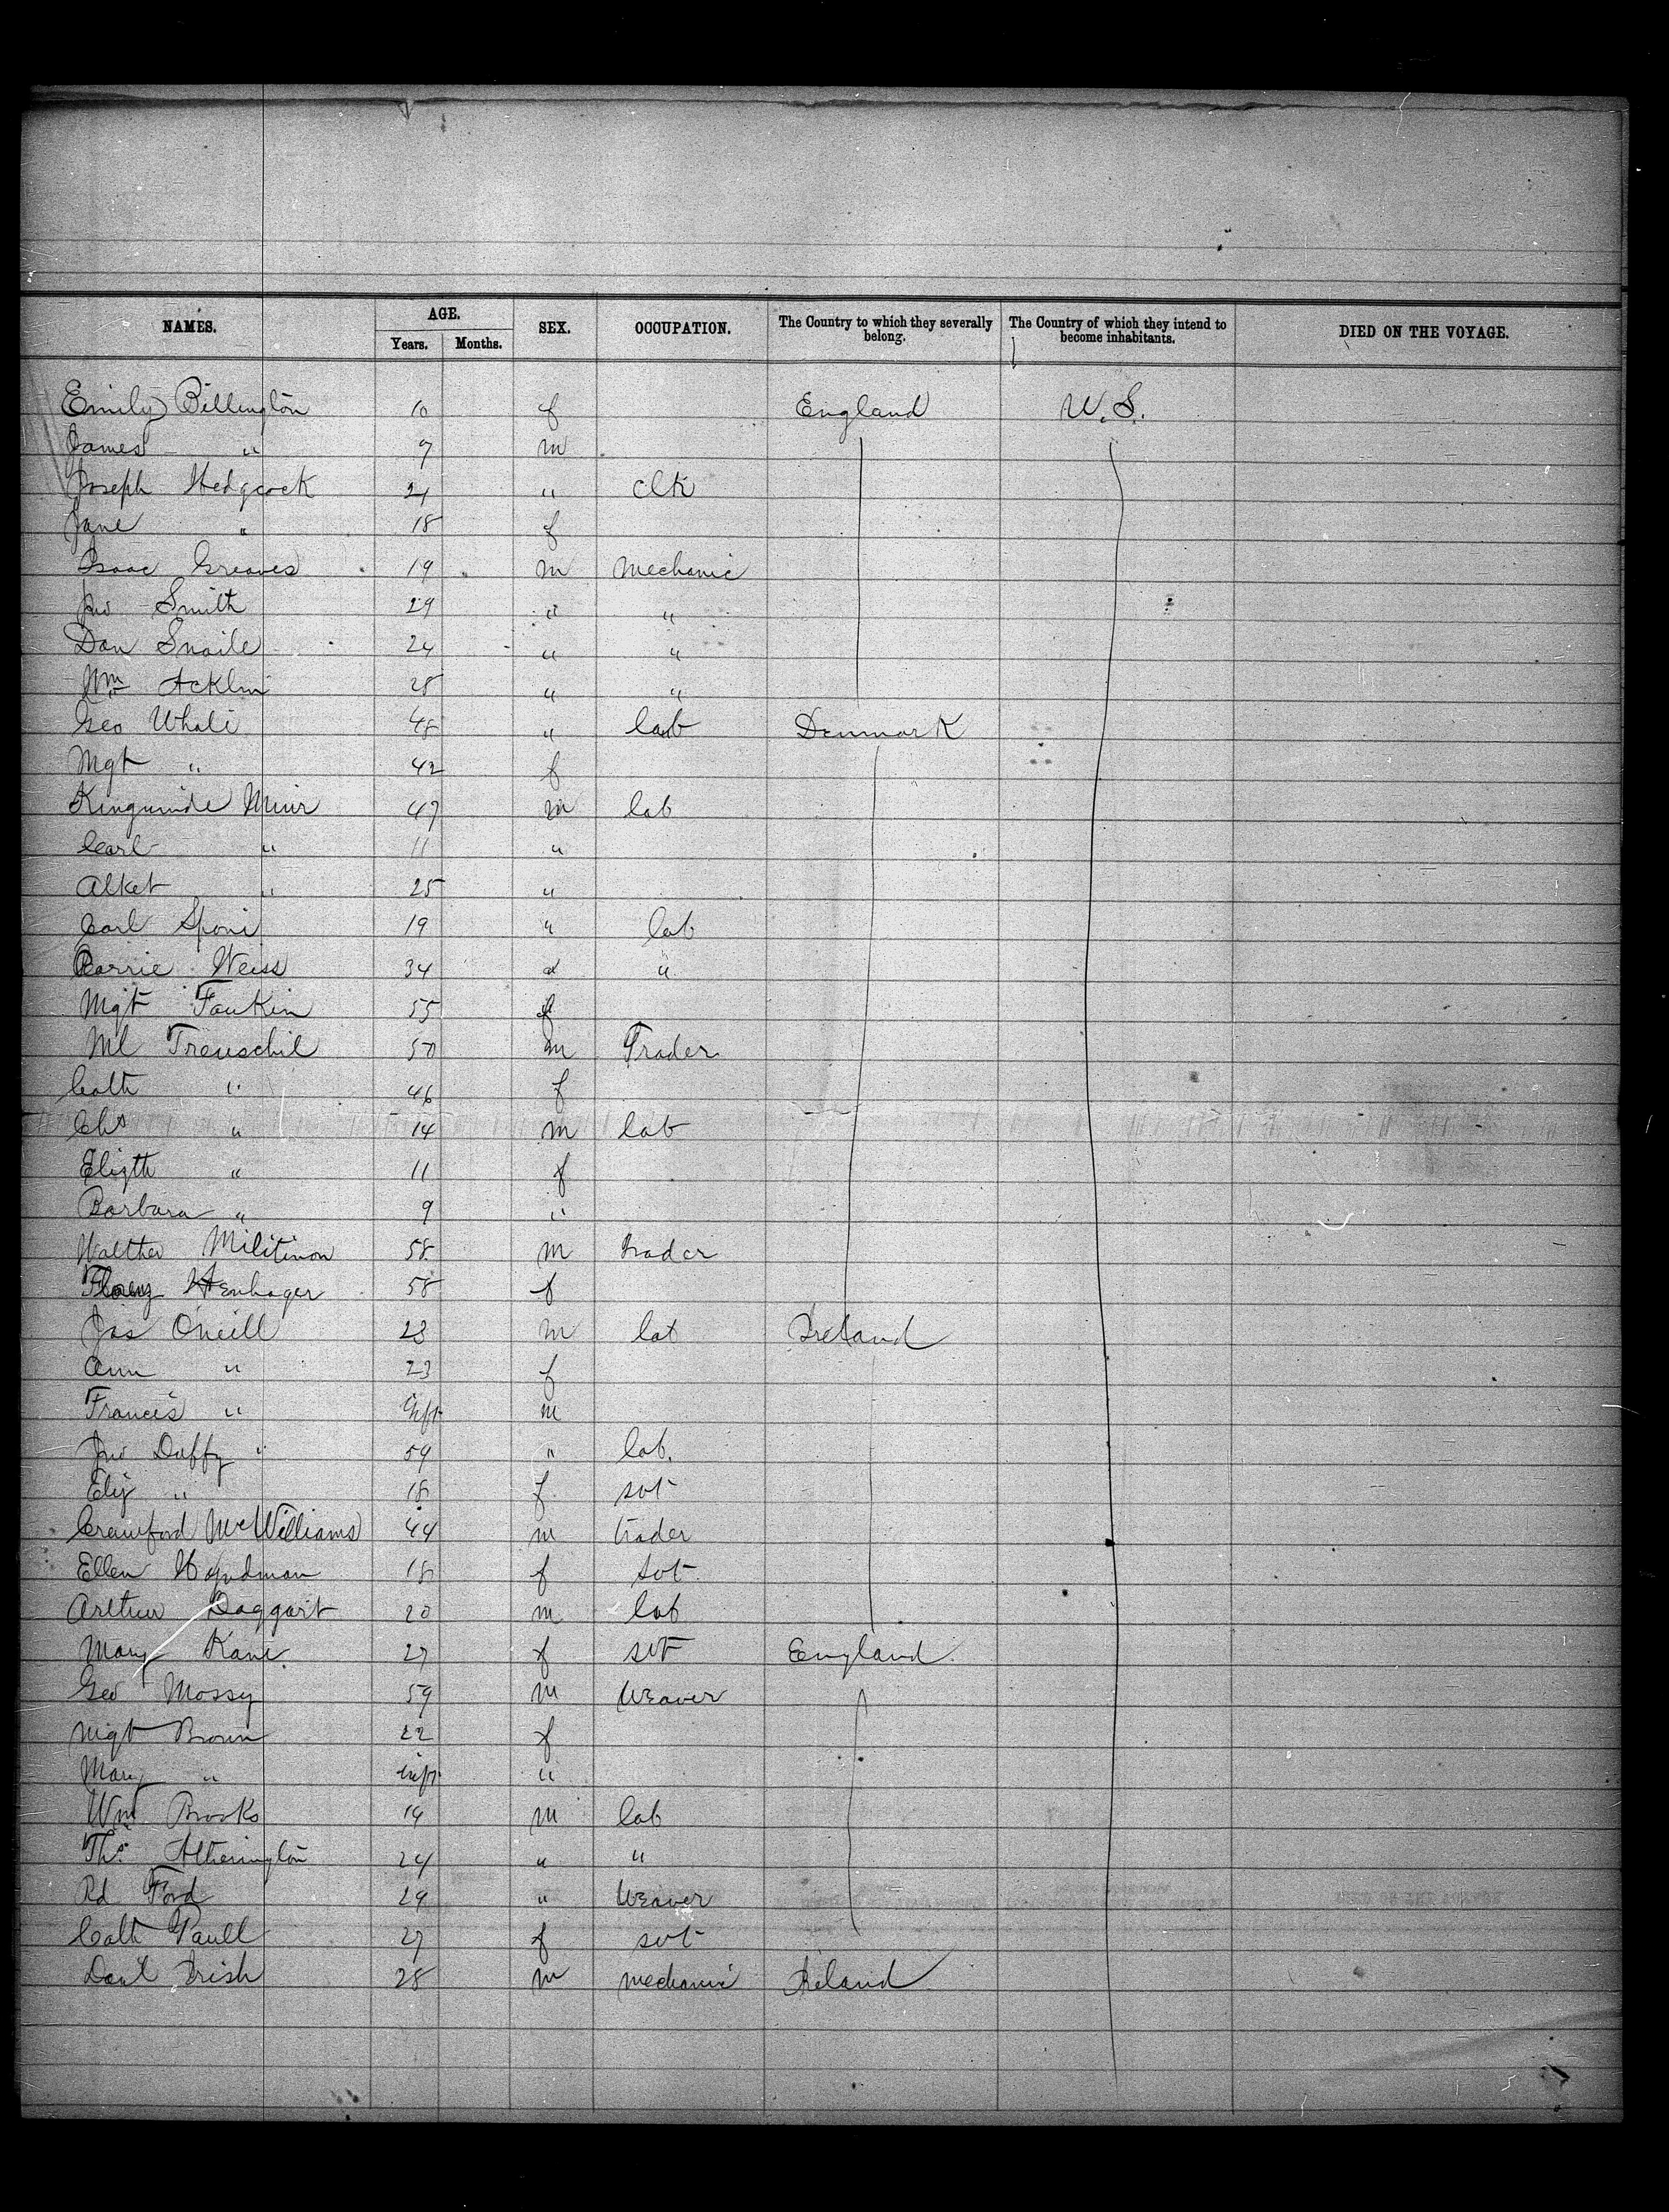 NAMES. AGE. Years. Months. SEX. OCCUPATION. The Country to which they severally belong. The Country of which they intend to become inhabitants. DIED ON THE VOYAGE.
Emily Billington 10 f England U.S.
James " 9 m
Joseph Hedgcock 21 " Clk
Jane " 18 f
Isaac Greaves 19 m Mechanic
Jno Smith 29 " "
Dan Snaile 24 " "
Wm Acklin 28 " "
Geo Whali 48 " lab Denmark
Mgt " 42 f
Muir 47 m lab
Carl " 11 "
Alket " 25 "
Carl Sponi 19 " lab
Carrie Weiss 34 "
Mgt Faukin 55 f
Ml Treuschil 50 m Trader
Cath " 46 f
Chs " 14 m lab
Elizth " 11 f
Barbara " 9 "
Walther Militinon 58 m trader
Henhager 58 f
Jas O'neill 23 m lab Ireland
Ann " 23 f
Francis " inft m
Jno Duffy " 59 " lab.
Eliz " 18 f svt
Crawford McWilliams 44 m trader
Ellen 18 f svt
Arthur Daggart 20 m lab
Mary Kane 27 f svt England
Geo Mossy 59 m Weaver
Mgt Brown 22 f
Mary " inft "
Wm Brooks 19 m lab
Ths. Atherington 24 " "
Rd Ford 29 " Weaver
Cath Paull 27 f svt
Danl Irish 28 m mechanic Ireland